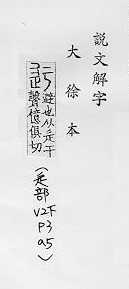 說文解字
大徐本
避也从辵于
聲憶俱切
(辵部 V2下 P3 a5)